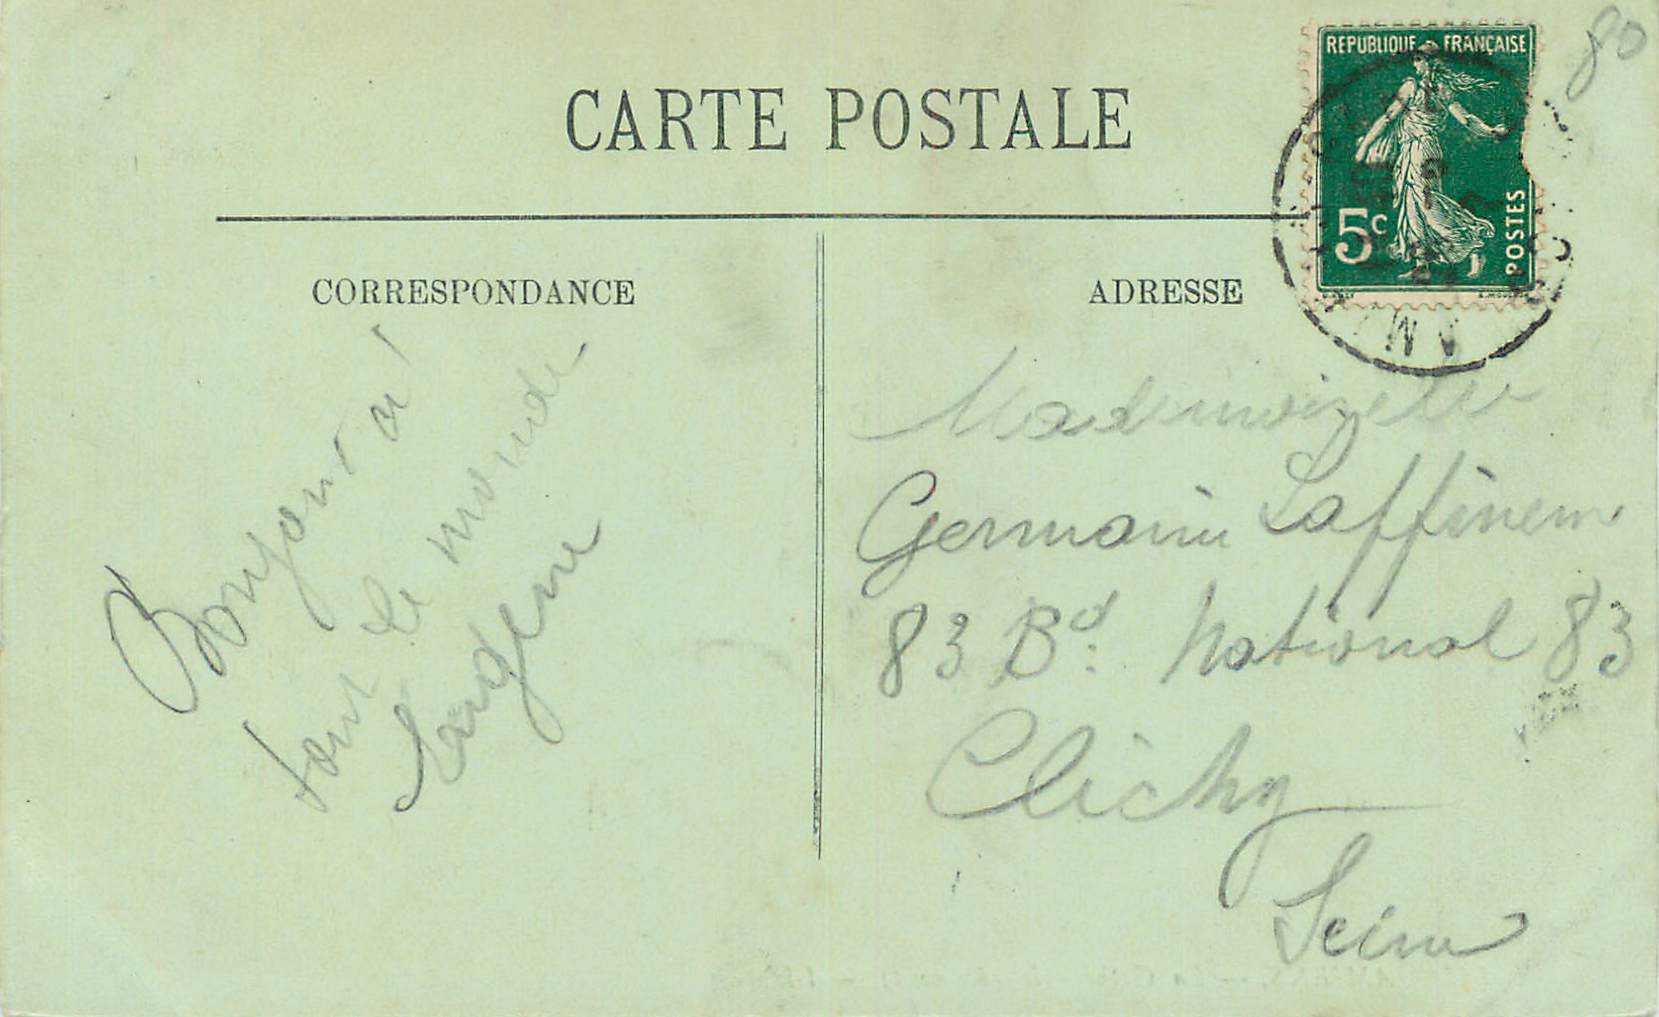 80
REPUBLIQUE FRANÇAISE
5c
POSTES
CARTE POSTALE
CORRESPONDANCE
Bonjour a
tout le monde
ADRESSE
Mademoizelle
Germaine
83 Bd: National 83
Clichy
Seine